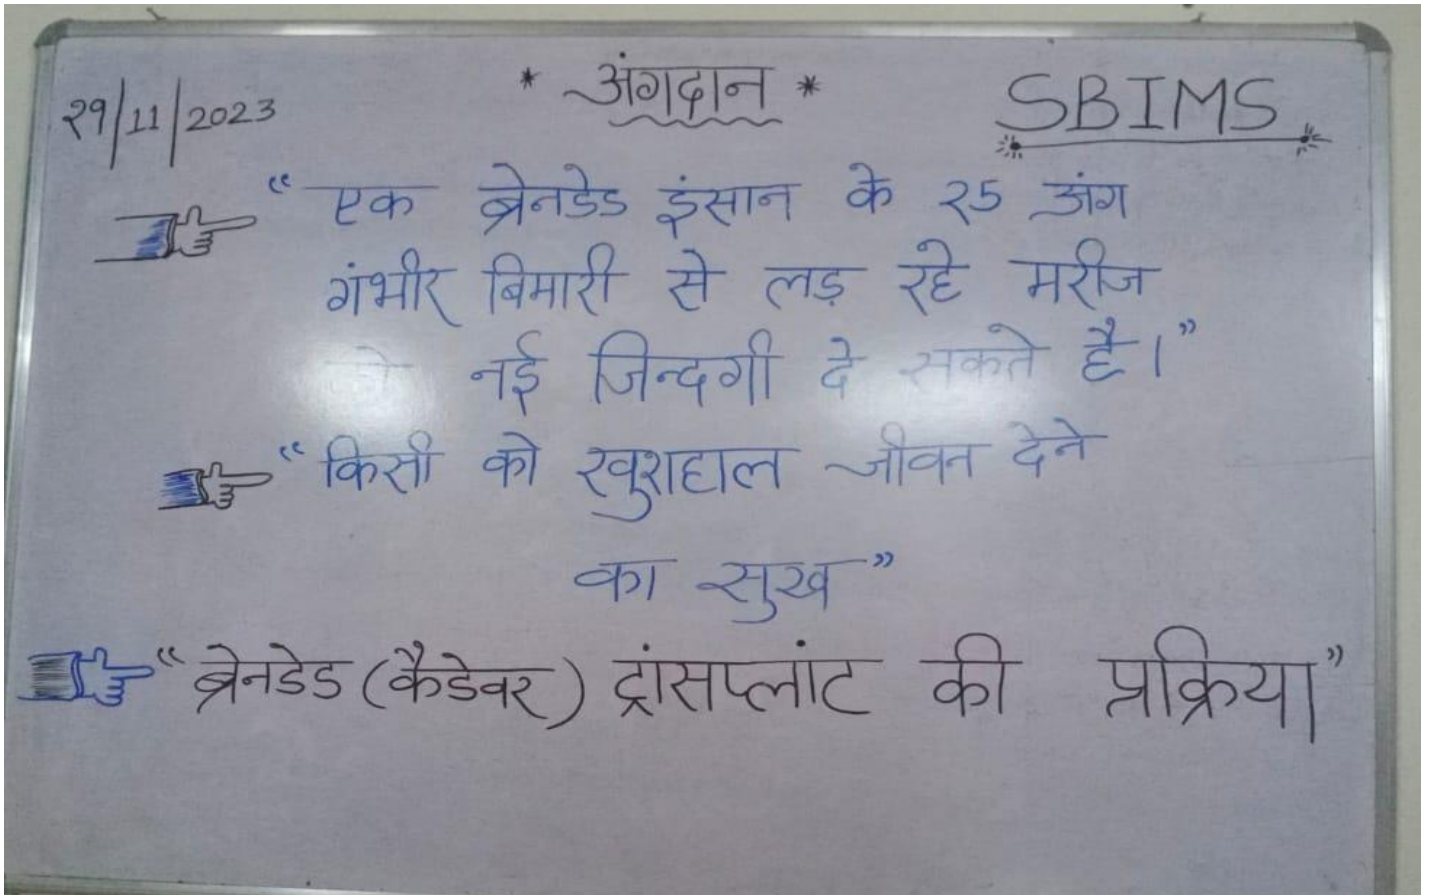 २९/11/2023
* अंगदान *
SBIMS
“ एक ब्रेनडेड इंसान के २5 अंग
गंभीर बिमारी से लड़ रहे मरीज
को नई जिन्दगी दे सकते है।”
“ किसी को खुशहाल जीवन देने
का सुख ”
“ ब्रेनडेड (कैडेवर) ट्रांसप्लांट की प्रक्रिया”